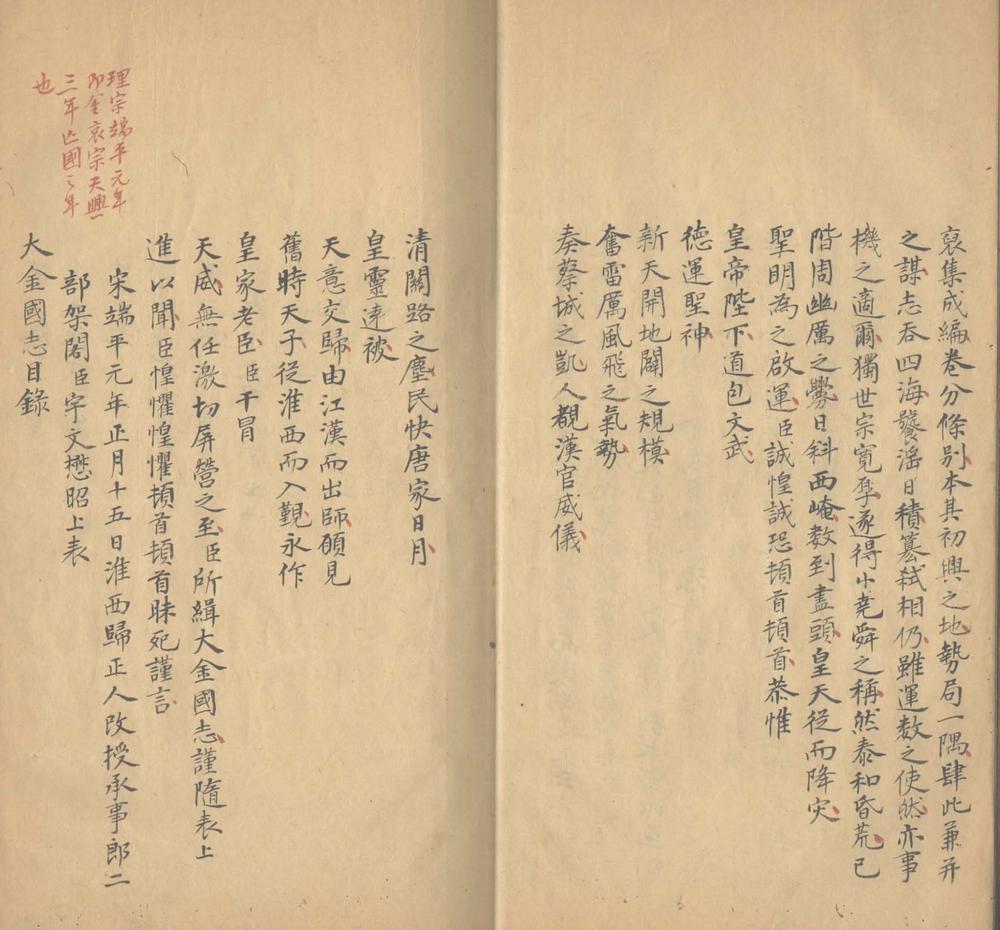 裒集成編卷分條別本其初興之地勢局一隅肆此兼并
之謀志吞四海發滛日積簒弑相仍雖運数之使然亦事
機之適爾獨世宗寛厚遂得小堯舜之稱然泰和昏荒已
階周幽厲之釁日斜西崦数到盡頭皇天從而降灾
聖明為之啟運臣誠惶誠恐頓首頓首恭惟
皇帝陛下道包文武
徳運聖神
新天開地闢之規模
奮雷厲風飛之氣勢
奏蔡城之凱人覩漢官威儀
清關路之塵民快唐家日月
皇靈逺被
天意交歸由江漢而出師頋見
舊時天子從淮西而入覲永作
皇家老臣臣干冒
天威無任激切屏營之至臣所緝大金國志謹隨表上
進以聞臣惶懼惶懼頓首頓首昧死謹言
宋端平元年正月十五日淮西歸正人改授承事郎二
部架閣臣宇文懋昭上表
大金國志目錄
理宗端平元年
即金哀宗天興
三年亾國之年
也